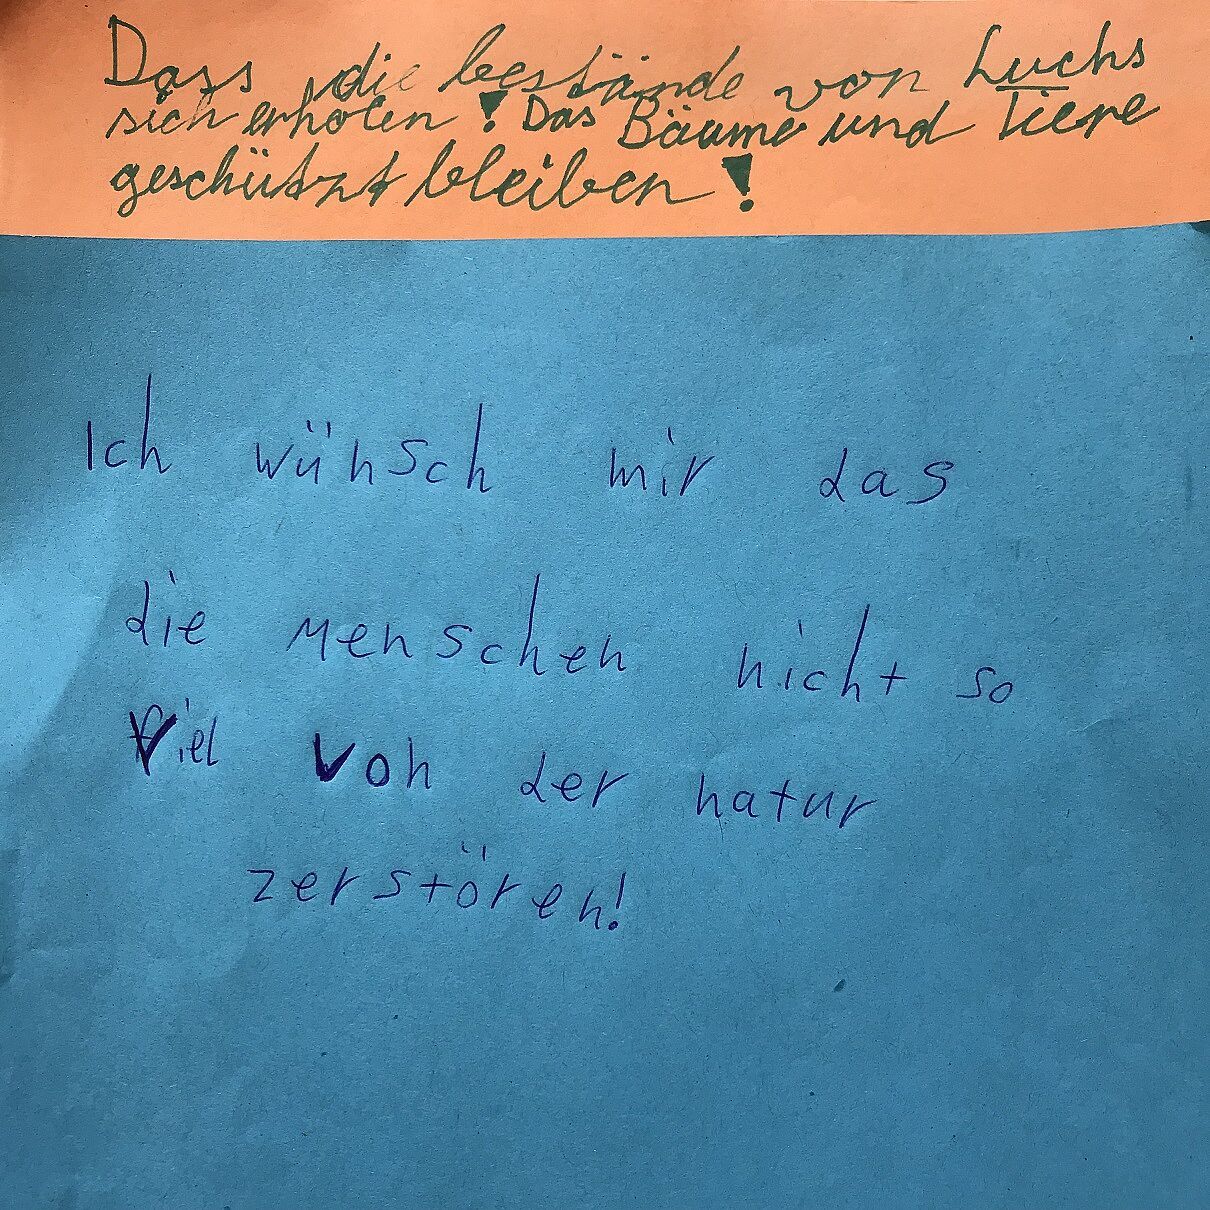 Dass die bestände von Luchs
sich erholen! Das Bäume und Tiere
geschützt bleiben!
Ich wünsch mir das
die Menschen nicht so
Viel Von der natur
zerstören!